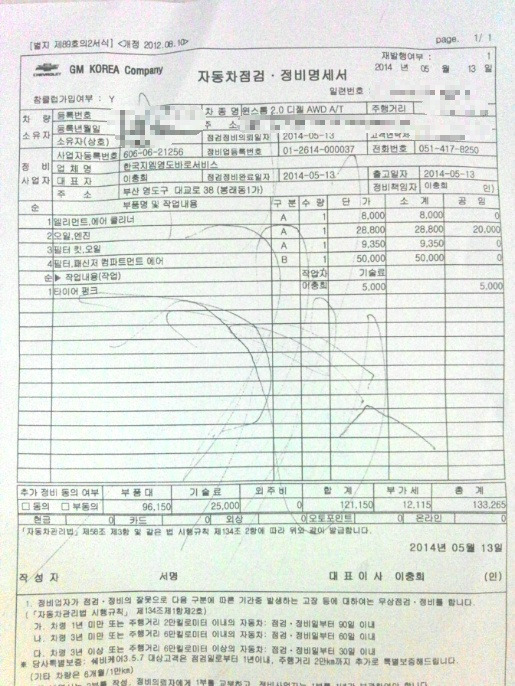 page. 1/ 1
[별지 제89호의2서식] <개정 2012.08.10>
재발행여부 : 1
CHEVROLET GM KOREA Company 자동차점검 · 정비명세서 2014 년 05 월 13 일
참클럽가입여부 : Y 일련번호 :
차 량 등록번호 차 종 명 윈스톰 2.0 디젤 AWD A/T 주행거리
등록년월일 주 소
소유자 소유자(상호) 점검정비의뢰일자 2014-05-13 고객연락처
정 비 사업자등록번호 606-06-21256 정비업등록번호 01-2614-000037 전화번호 051-417-8250
업 체 명 한국지엠영도바로서비스
사업자 대 표 자 이충희 점검정비완료일자 2014-05-13 출고일자 2014-05-13
주 소 부산 영도구 대교로 38 (봉래동1가) 정비책임자 이충희 인)
순 부품명 및 작업내용 구 분 수 량 단 가 소 계 공 임
1 엘리먼트,에어 클리너 A 1 8,000 8,000 0
2 오일,엔진 A 1 28,800 28,800 20,000
3 필터 킷,오일 A 1 9,350 9,350 0
4 필터,패신저 컴파트먼트 에어 B 1 50,000 50,000 0
순 ▶ 작업내용(작업) 작업자 기술료
1 타이어 펑크 이충희 5,000 5,000
추가 정비 동의 여부 부 품 대 기 술 료 외 주 비 합 계 부 가 세 총 계
□ 동의 □ 부동의 96,150 25,000 0 121,150 12,115 133,265
현금 0 카드 0 외상 0 오토포인트 0 온라인 0
「자동차관리법」제58조 제3항 및 같은 법 시행규칙 제134조 2항에 따라 위와 같이 발급합니다.
2014년 05월 13일
작 성 자 서명 대 표 이 사 이충희 (인)
1. 정비업자가 점검 · 정비의 잘못으로 다음 구분에 따른 기간중 발생하는 고장 등에 대하여는 무상점검 · 정비를 합니다.
(「자동차관리법 시행규칙」 제134조제1항제2호)
가. 차령 1년 미만 또는 주행거리 2만킬로미터 이내의 자동차: 점검 · 정비일부터 90일 이내
나. 차령 3년 미만 또는 주행거리 6만킬로미터 이내의 자동차: 점검 · 정비일부터 60일 이내
다. 차령 3년 이상 또는 주행거리 6만킬로미터 이상의 자동차: 점검 · 정비일부터 30일 이내
※ 당사특별보증: 쉐비케어3.5.7 대상고객은 점검일로부터 1년이내, 주행거리 2만km까지 추가로 특별보증해드립니다.
(기타 차량은 6개월/1만km)